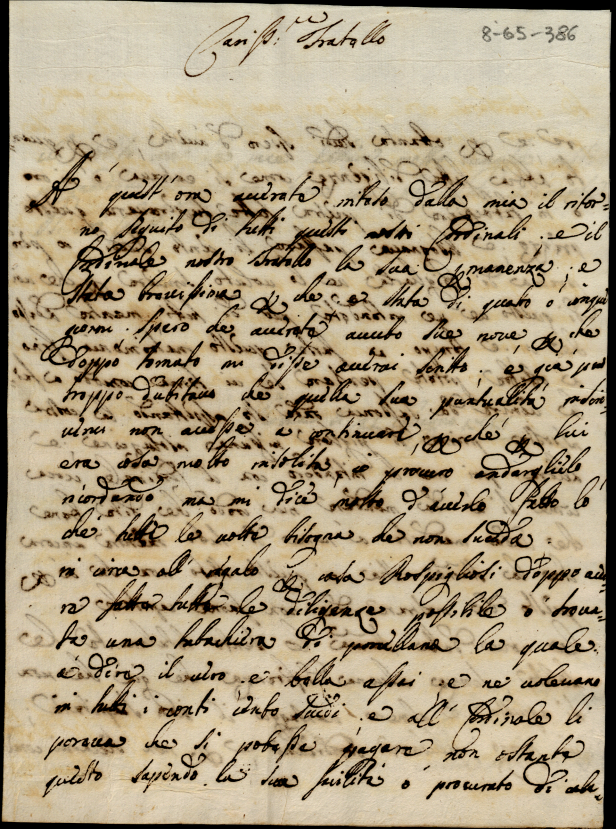 8-65-386
Cariss.mo Fratello
A quest' ora averete inteso dalla mia il ritor=
no seguito di tutti questi nostri Cardinali . e il
Cardinale nostro Fratello la sua Permanenza . e
stata brevissima che e stata di quatro o cinque
giorni . spero che averete avuto sue nove . che
doppo tornato mi disse avervi scritto . e già pur
troppo dubitavo che quella sua puntualità
non avesse a continuare , perché per lui
era cosa molto insolita io procuro andarglielo
ricordando ma mi dice molto d'averlo fatto lo
che tutte le volte bisogna che non suceda .
in circa all' regalo per casa Rospigliosi doppo ave=
re fatte tutte le diligenze possibile o trova=
ta una tabachiera di porcellana la quale .
a dire il vero . e bella assai . e ne volevano
in tutti i conti cento scudi . e all' Cardinale li
pareva che si potesse pagare non ostante
questo sapendo la sua facilità o procurato di cala=